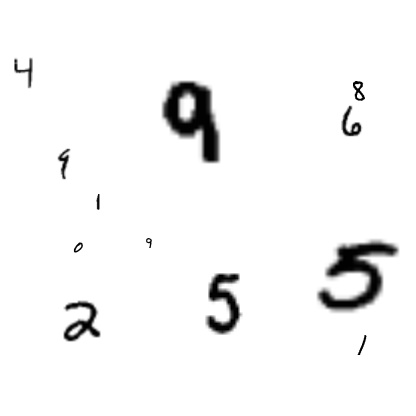 4
9
8
6
9
1
0 9
2 5 5
1